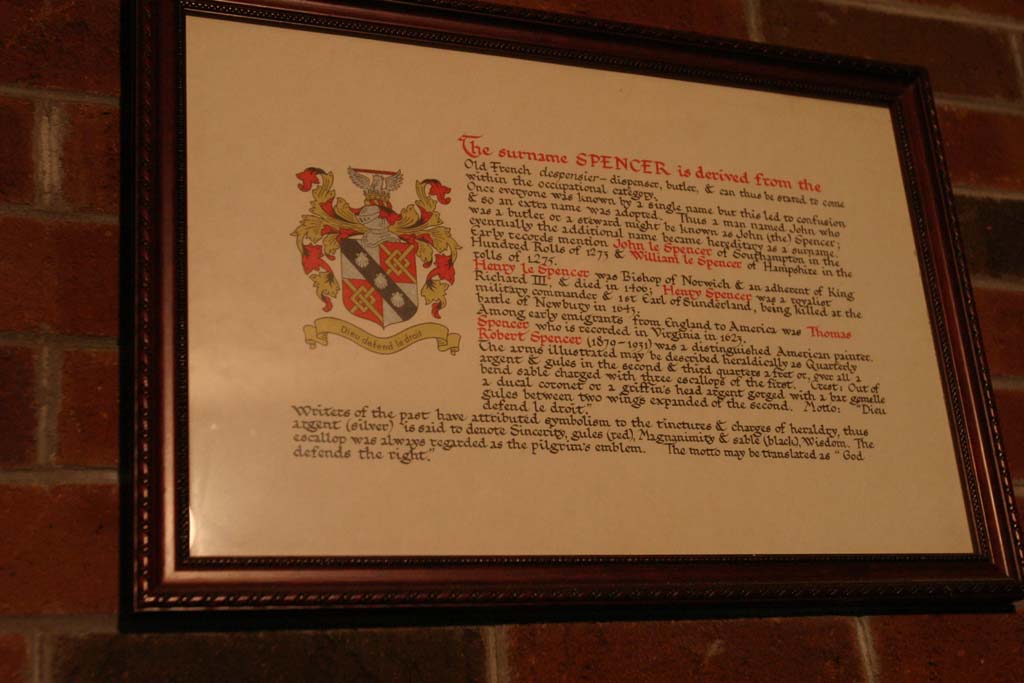 The surname SPENCER is derived from the
Old French despensier - dispenser, butler, & can thus be stated to come
within the occupational category.
Once everyone was known by a single name but this led to confusion
& so an extra name was adopted. Thus a man named John who
was a butler or a steward might be known as John (the) Spencer;
eventually the additional name became hereditary as a surname.
Early records mention John le Spencer of Southampton in the
Hundred Rolls of 1273 & William le Spencer of Hampshire in the
rolls of 1275.
Henry le Spencer was Bishop of Norwich & an adherent of King
Richard III, & died in 1406; Henry Spencer was a royalist
military commander & 1st Earl of Sunderland, being killed at the
battle of Newbury in 1643.
Among early emigrants from England to America was Thomas
Spencer who is recorded in Virginia in 1623.
Robert Spencer (1879-1931) was a distinguished American painter.
The arms illustrated may be described heraldically as Quarterly
argent & gules in the second & third quarters a fret or, over all a
bend sable charged with three escallops of the first. Crest: Out of
a ducal coronet or a griffin's head argent gorged with a bar gemelle
gules between two wings expanded of the second. Motto: "Dieu
defend le droit."
Writers of the past have attributed symbolism to the tinctures & charges of heraldry, thus
argent (silver) is said to denote Sincerity, gules (red), Magnanimity & sable (black), Wisdom. The
escallop was always regarded as the pilgrim's emblem. The motto may be translated as "God
defends the right."
Dieu defend le droit